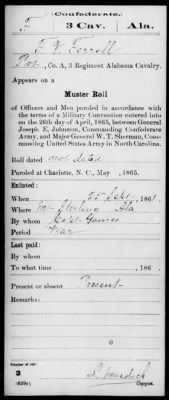 Confederate.
F 3 Cav. Ala.
F. W. Ferrell
Pvt., Co. A, 3 Regiment Alabama Cavalry.
Appears on a
Muster Roll
of Officers and Men paroled in accordance
with the terms of a Military Convention entered into
on the 26th day of April, 1865, between General
Joseph E. Johnston, Commanding Confederate
Army, and Major General W. T. Sherman, Com-
manding United States Army in North Carolina.
Roll dated not dated
Paroled at Charlotte, N. C., May , 1865.
Enlisted:
When 25 Sept., 1861.
Where Mt. Sterling Ala
By whom Capt. Gaines
Period War
Last paid:
By whom
To what time , 186 .
Present or absent Present
Remarks:
Number of roll:
3
(639e)
Copyist.